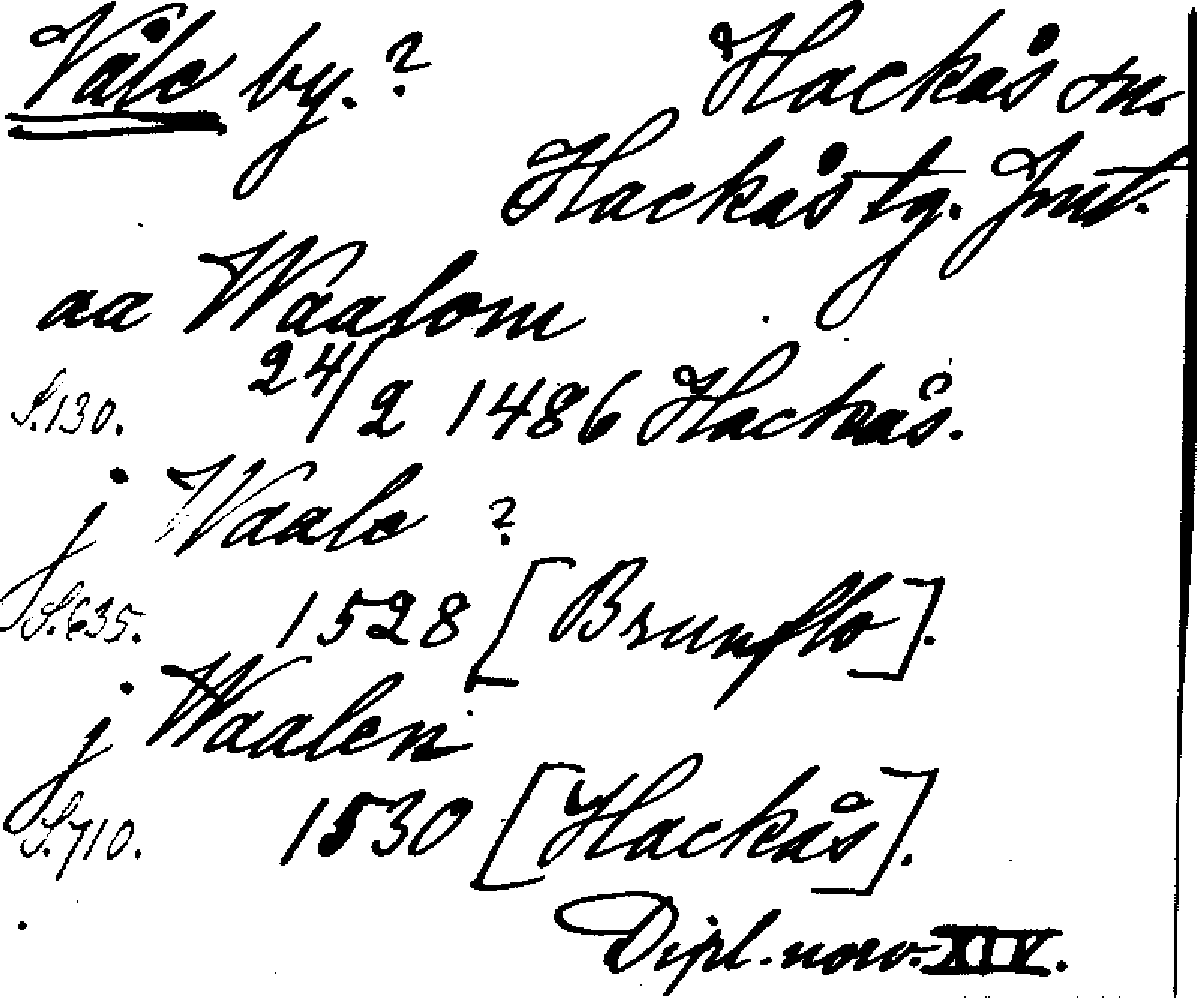 Våle by.? Hackås sn.
Hackås tg. Jmt.
aa Waalom
S.130. 24/2 1486 Hackås.
j Waale ?
S.635. 1528 [Brunflo].
j Waalen
S.710. 1530 [Hackås].
Dipl. norv. XIV.